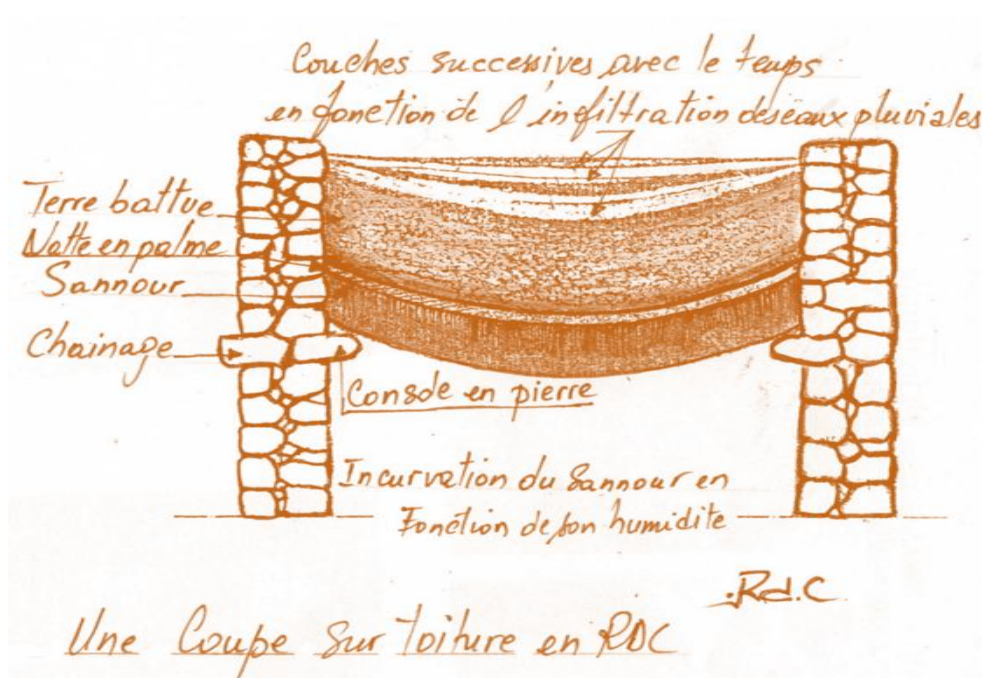 Couches successives avec le temps
en fonction de l'infiltration des eaux pluviales
Terre battue
Natte en palme
Sannour
Chainage
Console en pierre
Incurvation du Sannour en
Fonction de son humidite
R.d.C
Une Coupe Sur toiture en RDC